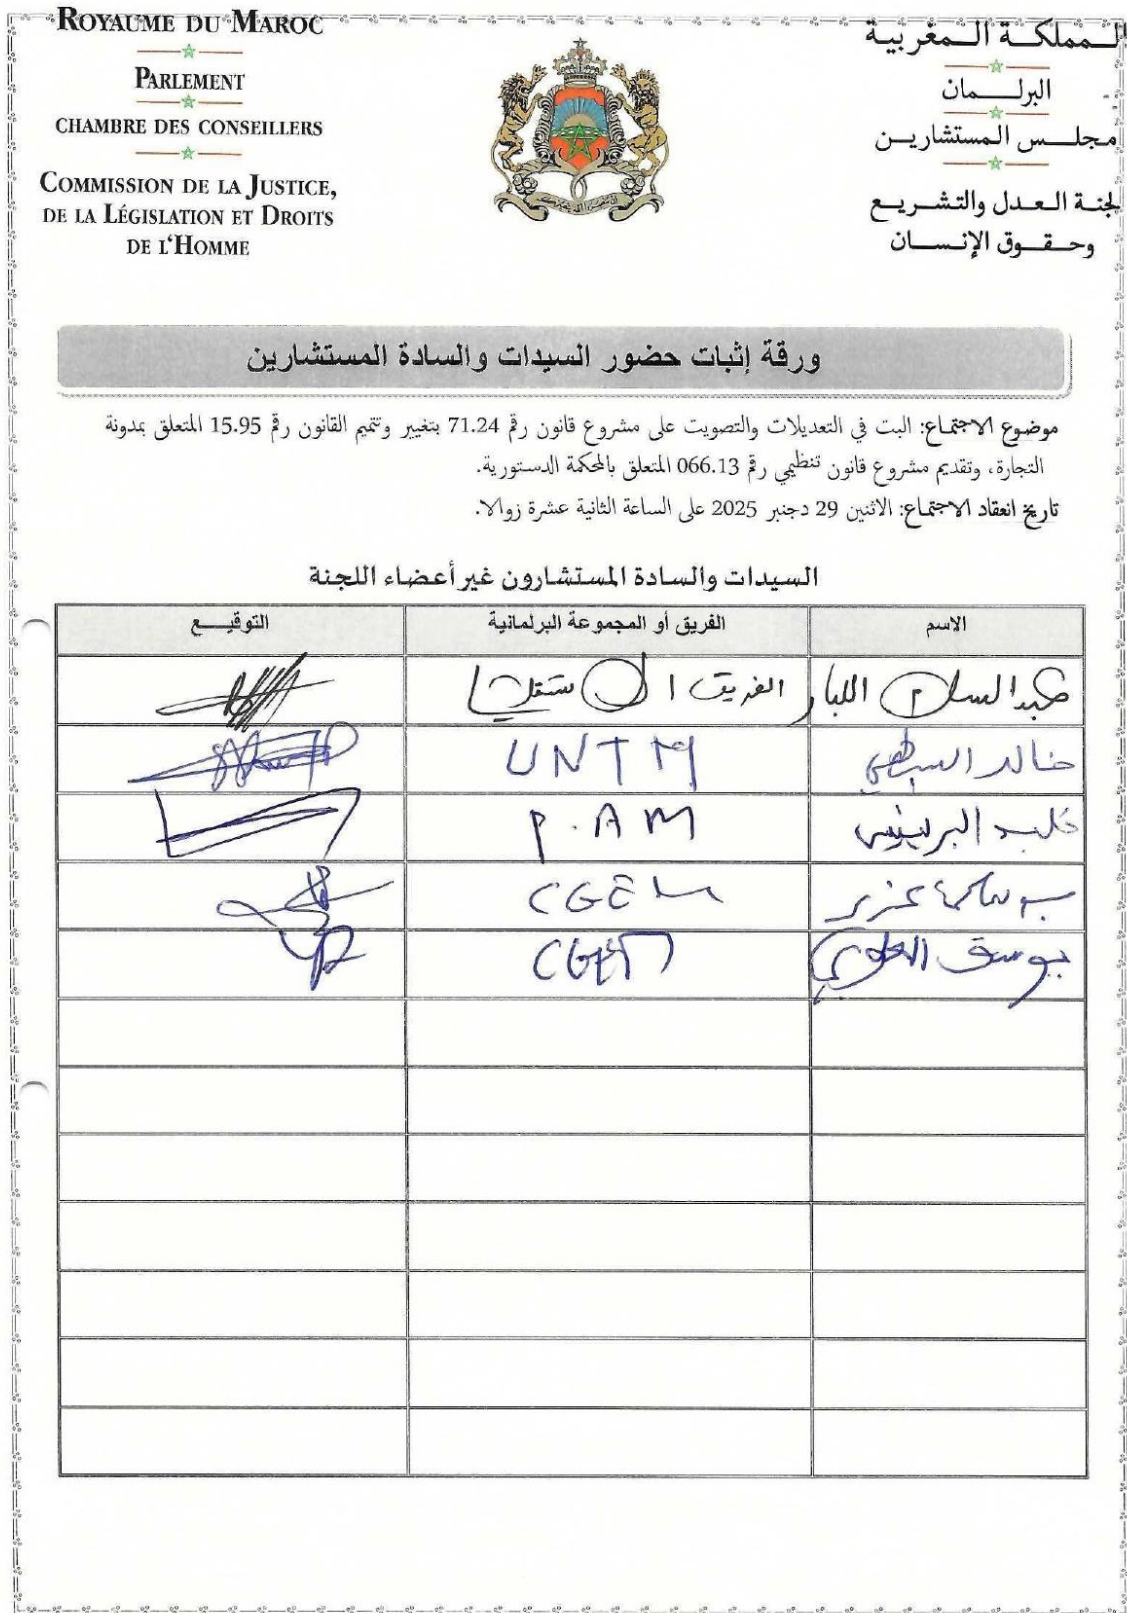 ROYAUME DU MAROC
PARLEMENT
CHAMBRE DES CONSEILLERS
COMMISSION DE LA JUSTICE,
DE LA LÉGISLATION ET DROITS
DE L'HOMME
المملكة المغربية
البرلمان
مجلس المستشارين
لجنة العدل والتشريع
وحقوق الإنسان
ورقة إثبات حضور السيدات والسادة المستشارين
موضوع الاجتماع: البت في التعديلات والتصويت على مشروع قانون رقم 71.24 بتغيير وتتميم القانون رقم 15.95 المتعلق بمدونة
التجارة، وتقديم مشروع قانون تنظيمي رقم 066.13 المتعلق بالمحكمة الدستورية.
تاريخ انعقاد الاجتماع: الاثنين 29 دجنبر 2025 على الساعة الثانية عشرة زوالا.
السيدات والسادة المستشارون غير أعضاء اللجنة
الاسم الفريق أو المجموعة البرلمانية التوقيع
عبد السلام اللبار الفريق الاستقلالي
خالد السطي UNTM
P.AM
CGEM
يوسف العلوي CGEM